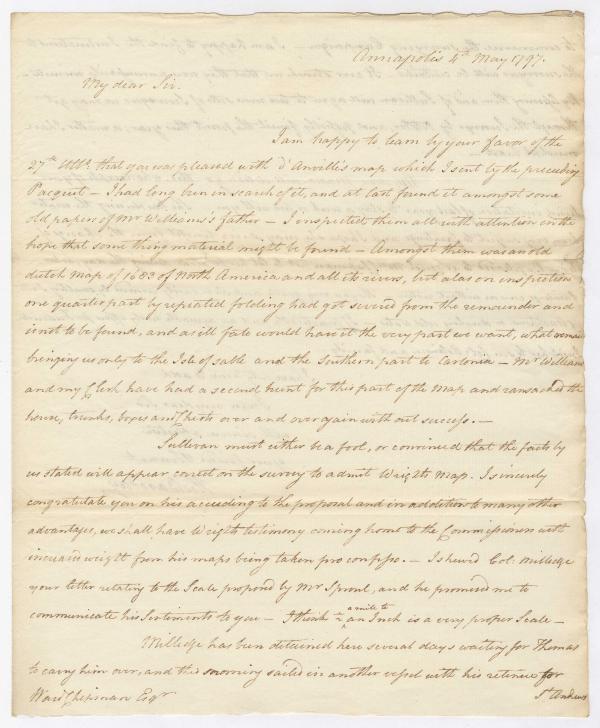 Annapolis 4th May 1797.
My dear Sir.
I am happy to learn by your favor of the
27th Ulto. that you was pleased with d'Anville's map which I sent by the preceeding
Pacquet — I had long been in search of it, and at last found it amongst some
old papers of Mr Williams's father — I inspected them all with attention in the
hope that some thing material might be found — Amongst them was an old
dutch map of 1683 of North America and all its rivers, but alas on inspection
one quarter part by repeated folding had got severed from the remainder and
is not to be found, and as ill fate would have it the very part we want, what remains
bringing us only to the Isle of sable and the Southern part to Carolonia — Mr Williams
and my Clerk have had a second hunt for this part of the Map and ransacked the
house, trunks, boxes and Chests over and over again with out success. —
Sullivan must either be a fool, or convinced that the facts by
us stated will appear correct on the survey to admit Wrights Map. I sincerely
congratulate you on his acceeding to the proposal and in addition to many other
advantages, we shall have Wrights testimony coming home to the Commissioners with
increased weight from his maps being taken pro confesso. — I shew'd Col: Milledge
your letter relating to the Scale proposed by Mr Sproul, and he promised me to
communicate his Sentiments to you — I think 2 a mile to an Inch is a very proper Scale —
Milledge has been detained here several days waiting for Thomas
to carry him over, and this morning sailed in another vessel with his retinue for
Ward Chipman Esqr
St Andrews